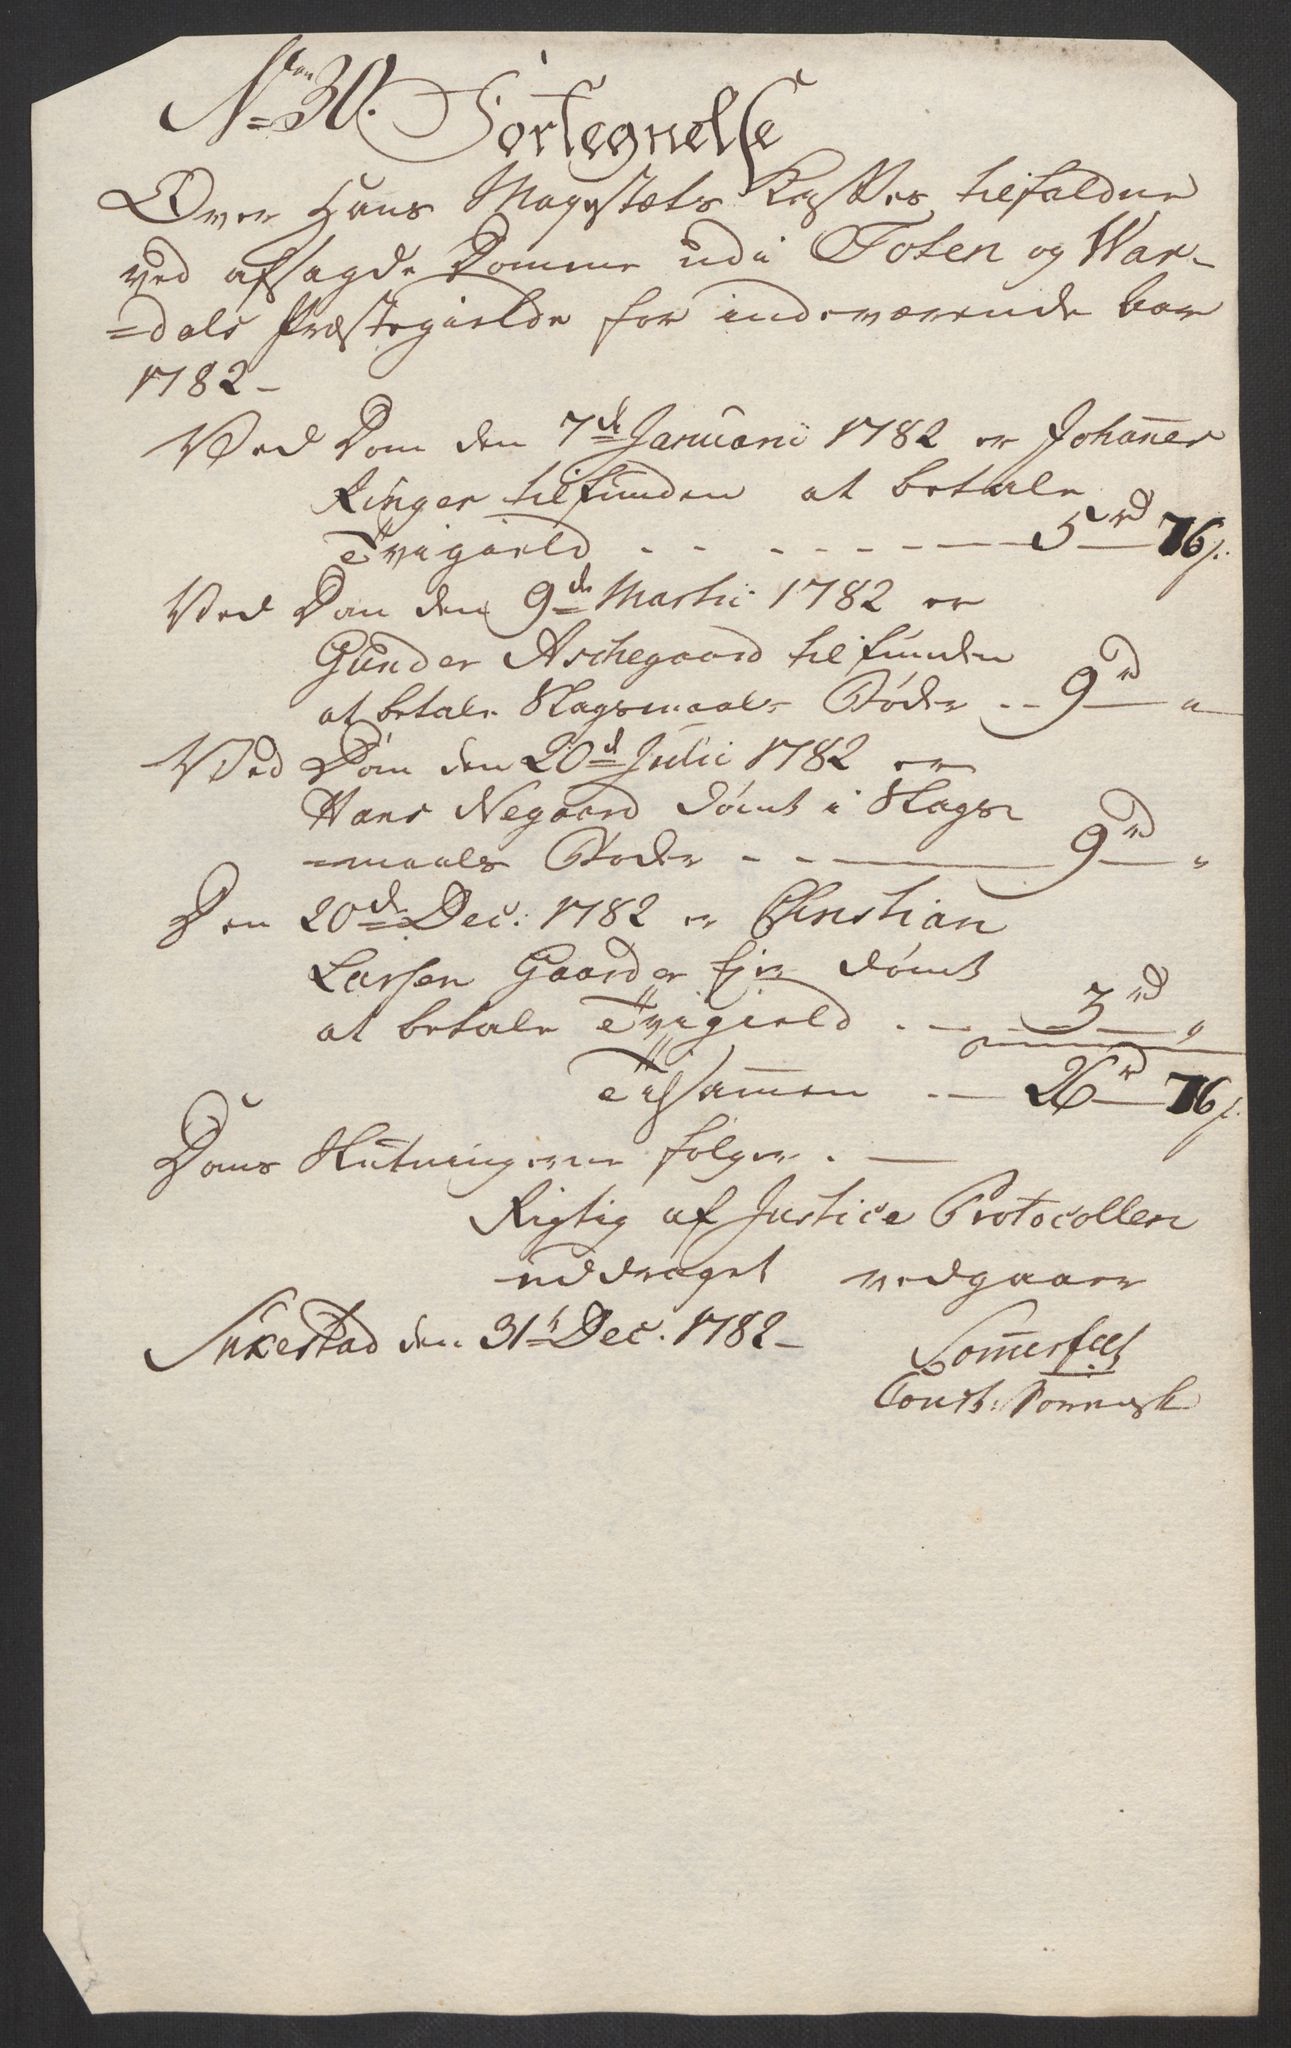 No 30. Fortegnelse
Over Hans Mayestæts Kasses tilfaldne
ved afsagde Domme udi Toten og War-
=dals Præstegielde for indeværende Aar
1782-
Ved Dom den 7de Januarii 1782 er Johannes
Ringer tilfunden at betale
Tvigield - - - - - - - 5rd 76s.
Ved Dom den 9de Martii 1782 er
Gunder Aschegaard tilfunden
at betale Slagsmaals Bøder - - 9rd "
Ved Dom den 20d Julii 1782 er
Hans Negaard dømt i Slags-
=maals Bøder - - 9rd "
Den 20de Dec: 1782 er Christian
Larsen Gaarder Eje dømt
at betale Tvigield . - - 3rd "
Tilsammen . - 26rd 76s.
Doms Slutningerne følger . -
Rigtig af Justice Protocollen
uddraget vedgaaer
Sukestad den 31t Dec. 1782- Sommerfelt
Const: Sorensk